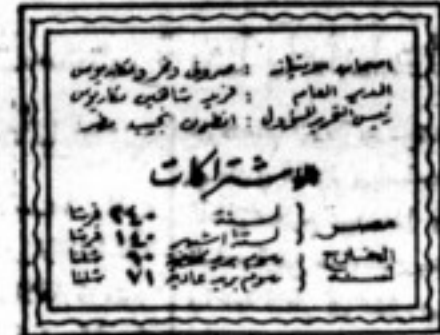 اصحاب الامتياز : صروف ونمر ومكاريوس
المدير العام : فريد شاهين مكاريوس
رئيس التحرير المسؤول : انطون نجيب مطر
الاشتراكات
مصر { لسنة ٢٤٠ قرشا
لستة اشهر ١٤٠ قرشا
الخارج { رسوم بريد ٩٠ شلنا
لسنة رسوم بريد عادية ٧١ شلنا